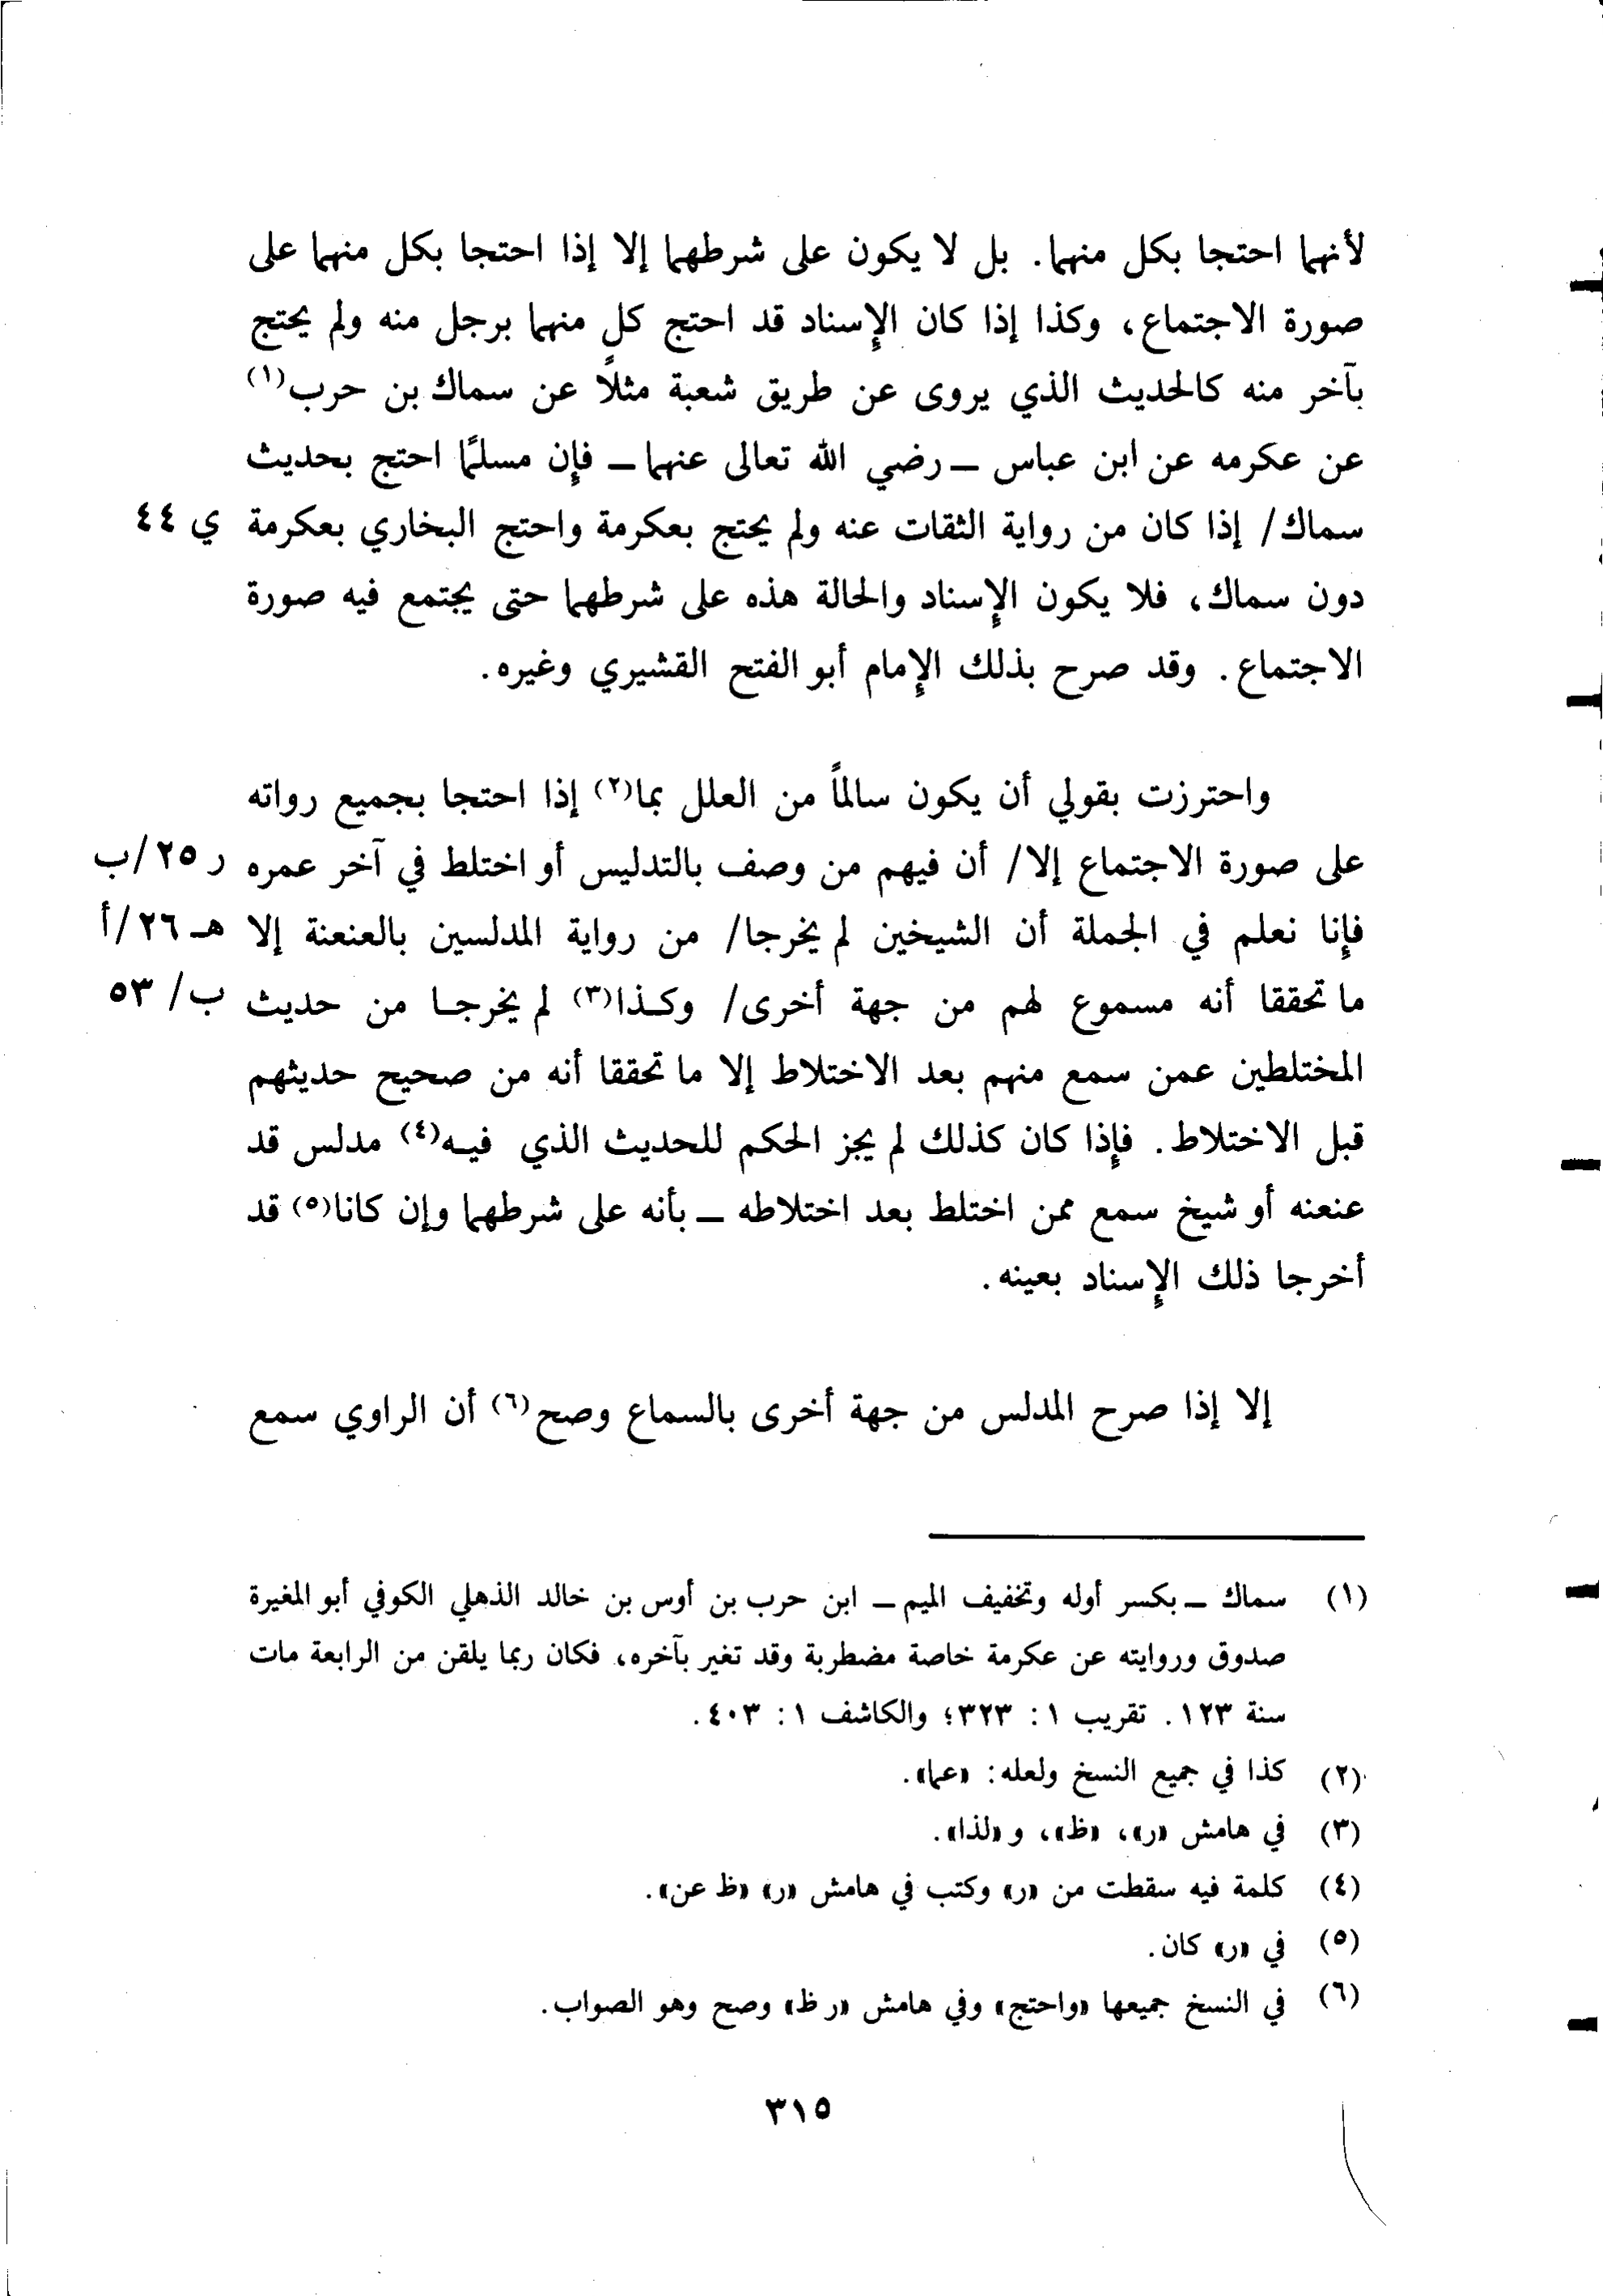 لأنهما احتجا بكل منهما. بل لا يكون على شرطهما إلا إذا احتجا بكل منهما على
صورة الاجتماع، وكذا إذا كان الإسناد قد احتج كل منهما برجل منه ولم يحتج
بآخر منه كالحديث الذي يروى عن طريق شعبة مثلاً عن سماك بن حرب(١)
عن عكرمه عن ابن عباس ــ رضي الله تعالى عنهما ــ فإن مسلمًا احتج بحديث
سماك/ إذا كان من رواية الثقات عنه ولم يحتج بعكرمة واحتج البخاري بعكرمة ي ٤٤
دون سماك، فلا يكون الإسناد والحالة هذه على شرطهما حتى يجتمع فيه صورة
الاجتماع. وقد صرح بذلك الإمام أبو الفتح القشيري وغيره.
واحترزت بقولي أن يكون سالمًا من العلل بما(٢) إذا احتجا بجميع رواته
على صورة الاجتماع إلا/ أن فيهم من وصف بالتدليس أو اختلط في آخر عمره ر ٢٥/ب
فإنا نعلم في الجملة أن الشيخين لم يخرجا/ من رواية المدلسين بالعنعنة إلا هـ ٢٦/أ
ما تحققا أنه مسموع لهم من جهة أخرى/ وكـذا(٣) لم يخرجـا من حديث ب/ ٥٣
المختلطين عمن سمع منهم بعد الاختلاط إلا ما تحققا أنه من صحيح حديثهم
قبل الاختلاط. فإذا كان كذلك لم يجز الحكم للحديث الذي فيـه(٤) مدلس قد
عنعنه أو شيخ سمع ممن اختلط بعد اختلاطه ــ بأنه على شرطهما وإن كانا(٥) قد
أخرجا ذلك الإسناد بعينه.
إلا إذا صرح المدلس من جهة أخرى بالسماع وصح(٦) أن الراوي سمع
(١) سماك ــ بكسر أوله وتخفيف الميم ــ ابن حرب بن أوس بن خالد الذهلي الكوفي أبو المغيرة
صدوق وروايته عن عكرمة خاصة مضطربة وقد تغير بآخره، فكان ربما يلقن من الرابعة مات
سنة ١٢٣. تقريب ١: ٣٢٣؛ والكاشف ١: ٤٠٣.
(٢) كذا في جميع النسخ ولعله: «عما».
(٣) في هامش «ر»، «ظ»، و «لذا».
(٤) كلمة فيه سقطت من «ر» وكتب في هامش «ر» «ظ عن».
(٥) في «ر» كان.
(٦) في النسخ جميعها «واحتج» وفي هامش «ر ظ» وصح وهو الصواب.
٣١٥